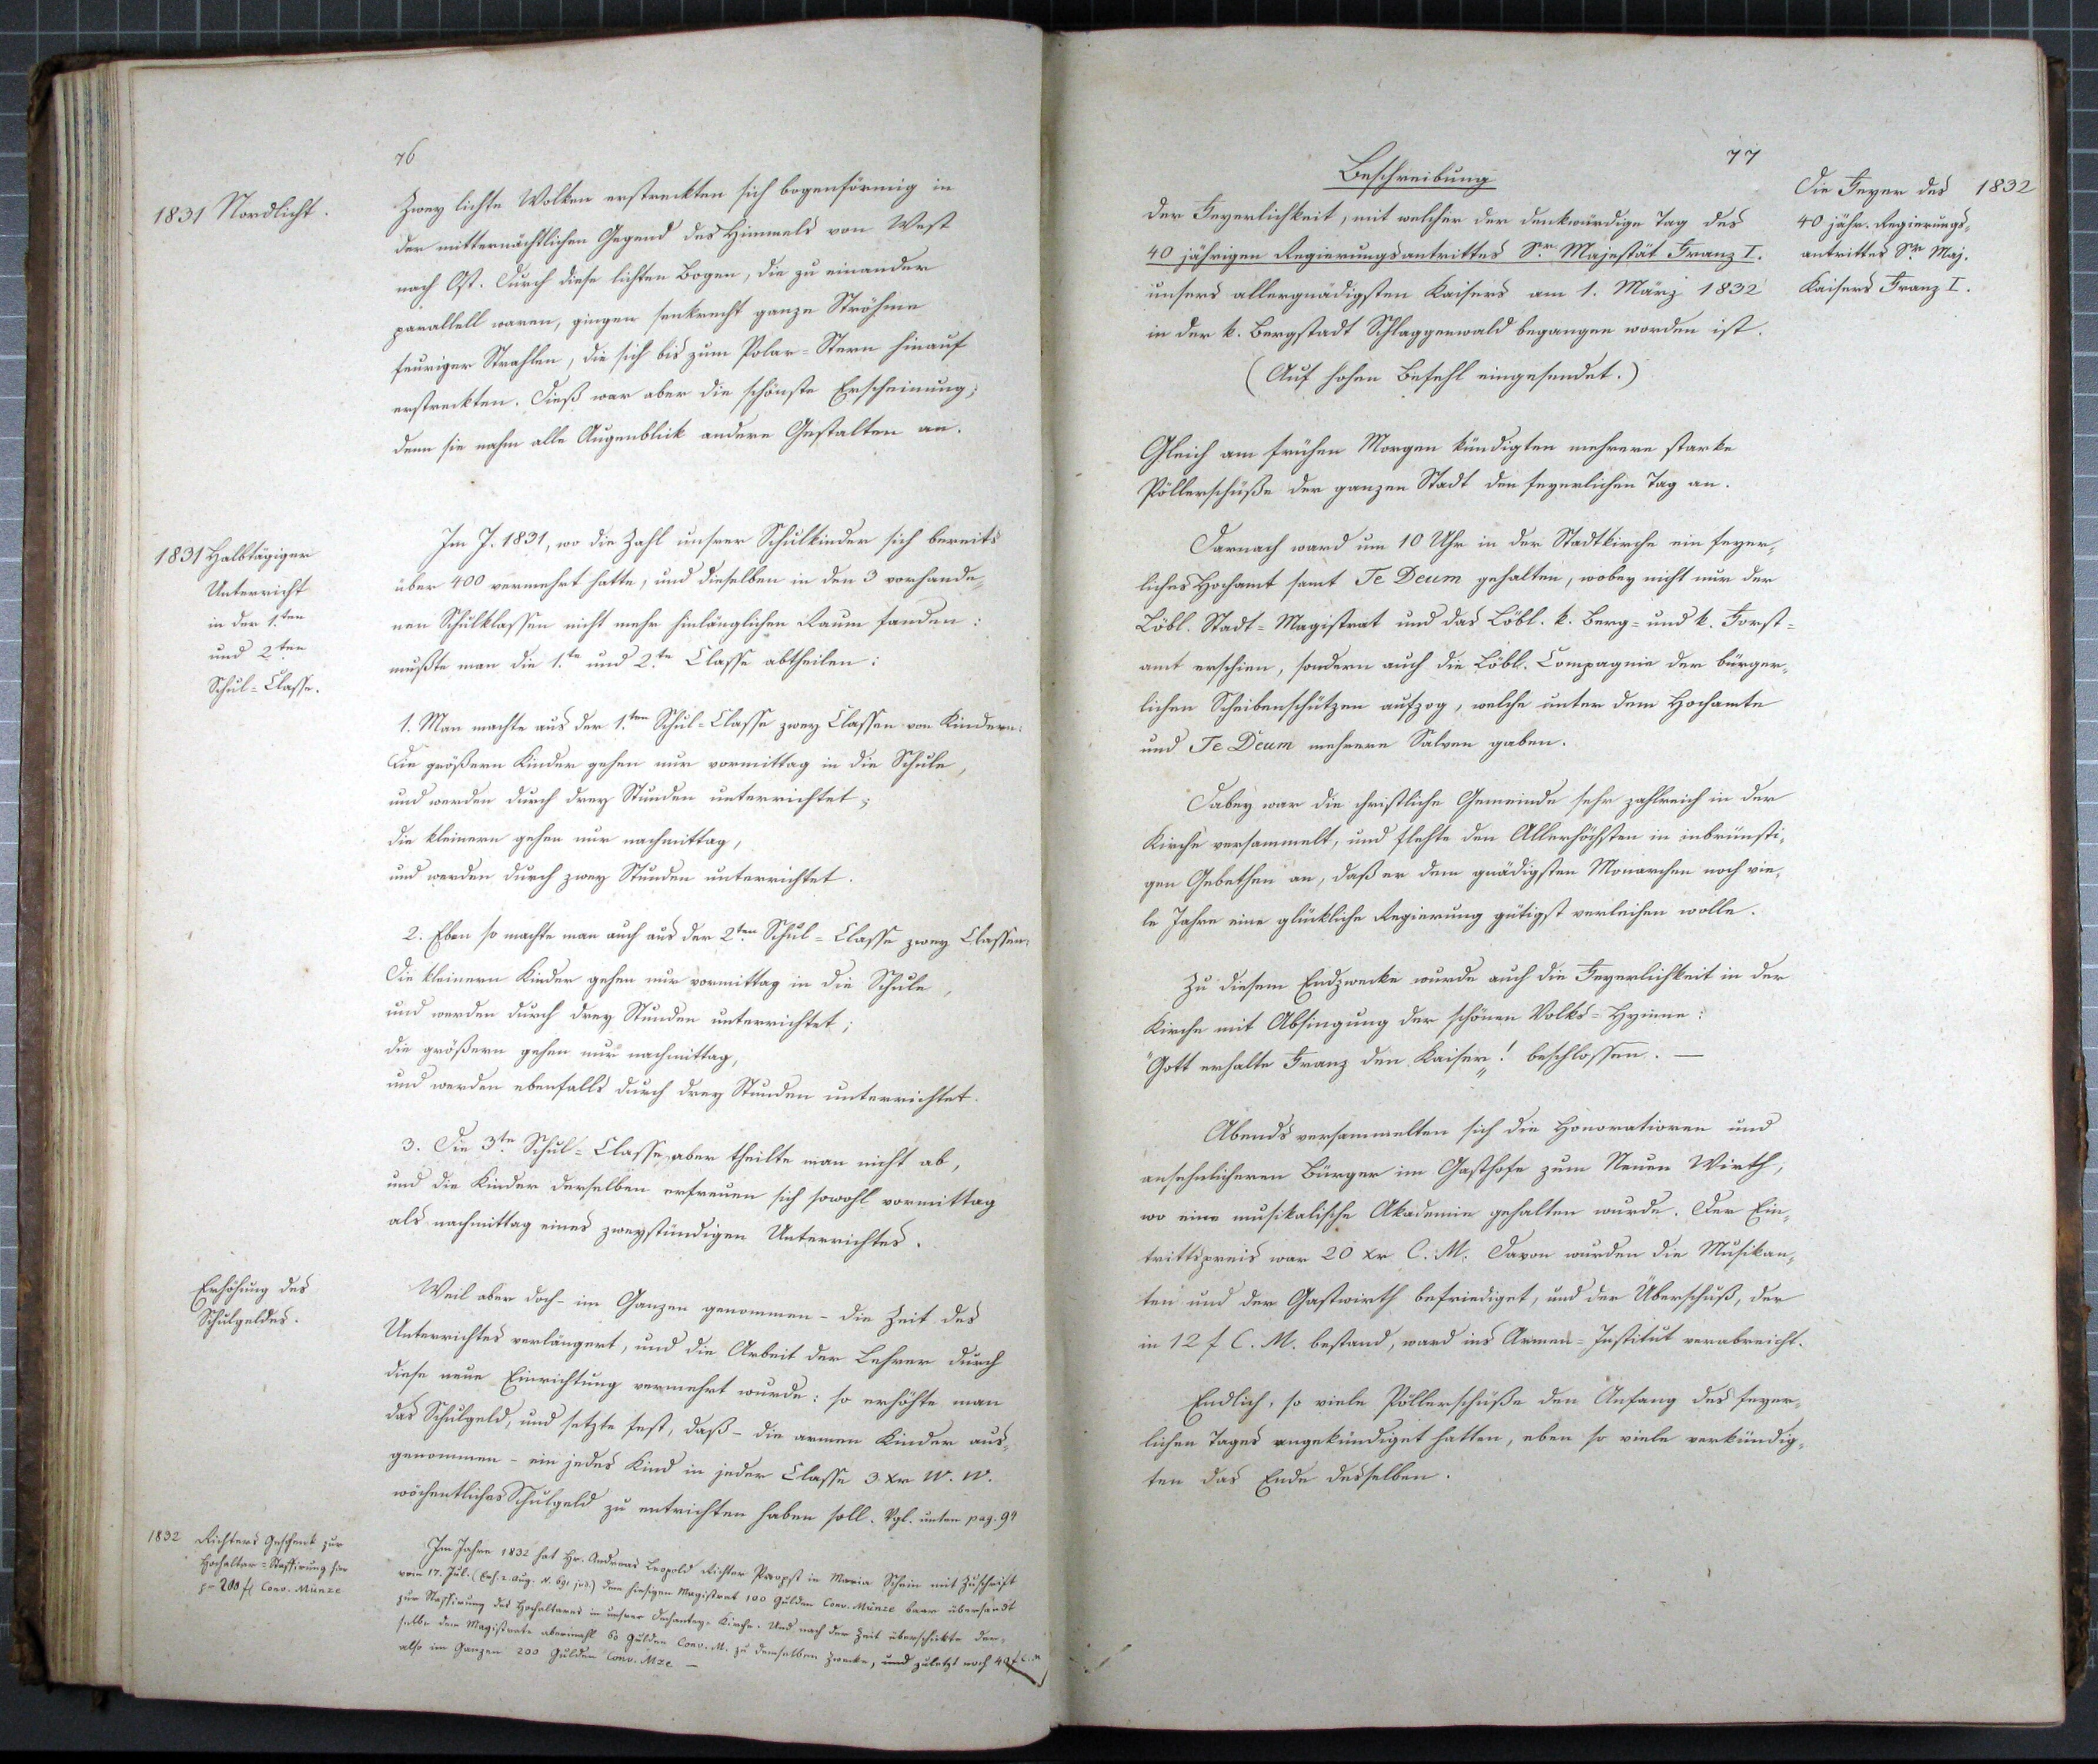 76
1831 Nordlicht.
Zwey lichte Wolken erstreckten sich bogenförmig in
der mitternächtlichen Gegend des Himmels von West
nach Ost. Durch diese lichten Bogen, die zu einander
parallell waren, giengen senkrecht ganze Ströhme
feuriger Strahlen, die sich bis zum Polar-Stern hinauf
erstreckten. Dieß war aber die schönste Erscheinung;
denn sie nahm alle Augenblick andere Gestalten an.
1831 Halbtägiger
Unterricht
in der 1.ten
und 2ten
Schul-Classe.
Im J. 1831, wo die Zahl unsrer Schulkinder sich bereits
über 400 vermehrt hatte, und dieselben in den 3 vorhande-
nen Schulklassen nicht mehr hinlänglichen Raum fanden:
mußte man die 1.te und 2.te Classe abtheilen:
1. Man machte aus der 1.ten Schul-Classe zwey Classen von Kindern:
Die größern Kinder gehen nur vormittag in die Schule,
und werden durch drey Stunden unterrichtet;
die kleinern gehen nur nachmittag,
und werden durch zwey Stunden unterrichtet.
2. Eben so machte man auch aus der 2ten Schul-Classe zwey Classen:
Die kleinern Kinder gehen nur vormittag in die Schule,
und werden durch drey Stunden unterrichtet;
die größern gehen nur nachmittag,
und werden ebenfalls durch drey Stunden unterrichtet.
3. Die 3te Schul-Classe aber theilte man nicht ab,
und die Kinder derselben erfreuen sich sowohl vormittag
als nachmittag eines zweystündigen Unterrichtes.
Erhöhung des
Schulgeldes.
Weil aber doch - im Ganzen genommen - die Zeit des
Unterrichtes verlängert, und die Arbeit der Lehrer durch
diese neue Einrichtung vermehrt wurde: so erhöhte man
das Schulgeld, und setzte fest, daß - die armen Kinder aus-
genommen - ein jedes Kind in jeder Classe 3 xr W. W.
wöchentliches Schulgeld zu entrichten haben soll. Vgl. unten pag. 99
1832 Richters Geschenk zur
Hochaltar-Staffirung hier
p 200 fl Conv. Münze
Im Jahre 1832 hat Hr. Andreas Leopold Richter Propst in Maria Schein mit Zuschrift
vom 17. Jul. (Exh. 2. Aug. N. 691 jud.) dem hiesigen Magistrat 100 Gulden Conv. Münze baar übersandt
zur Staffirung des Hochaltares in unsrer Dechantey-Kirche. Und nach der Zeit überschickte der-
selbe dem Magistrate abermahl 60 Gulden Conv. M. zu demselben Zwecke, und zuletzt noch 40 f C. M
also im Ganzen 200 Gulden Conv. Mze —
77
Beschreibung
der Feyerlichkeit, mit welcher der denkwürdige Tag des
40 jährigen Regierungsantrittes Sr. Majestät Franz I.
unsers allergnädigsten Kaisers am 1. März 1832
in der k. Bergstadt Schlaggenwald begangen worden ist.
(Auf hohen Befehl eingesendet.)
Die Feyer des 1832
40 jähr. Regierungs-
antrittes Sr. Maj.
Kaisers Franz I.
Gleich am frühen Morgen kündigten mehrere starke
Pöllerschüße der ganzen Stadt den feyerlichen Tag an.
Darnach ward um 10 Uhr in der Stadtkirche ein feyer-
liches Hochamt samt Te Deum gehalten, wobey nicht nur der
Löbl. Stadt-Magistrat und das Löbl. k. Berg- und k. Forst-
amt erschien, sondern auch die Löbl. Compagnie der bürger-
lichen Scheibenschützen aufzog, welche unter dem Hochamte
und Te Deum mehrere Salven gaben.
Dabey war die christliche Gemeinde sehr zahlreich in der
Kirche versammelt, und flehte den Allerhöchsten in inbrünsti-
gen Gebethen an, daß er dem gnädigsten Monarchen noch vie-
le Jahre eine glückliche Regierung gütigst verleihen wolle.
Zu diesem Endzwecke wurde auch die Feyerlichkeit in der
Kirche mit Absingung der schönen Volks-Hymne:
"Gott erhalte Franz den Kaiser"! beschlossen. —
Abends versammelten sich die Honoratioren und
ansehnlicheren Bürger im Gasthofe zum Neuen Wirth,
wo eine musikalische Akademie gehalten wurde. Der Ein-
trittspreis war 20 xr C. M. Davon wurden die Musikan-
ten und der Gastwirth befriediget, und der Überschuß, der
in 12 f C. M. bestand, ward ins Armen-Institut verabreicht.
Endlich, so viele Pöllerschüße den Anfang des feyer-
lichen Tages angekündiget hatten, eben so viele verkündig-
ten das Ende desselben.